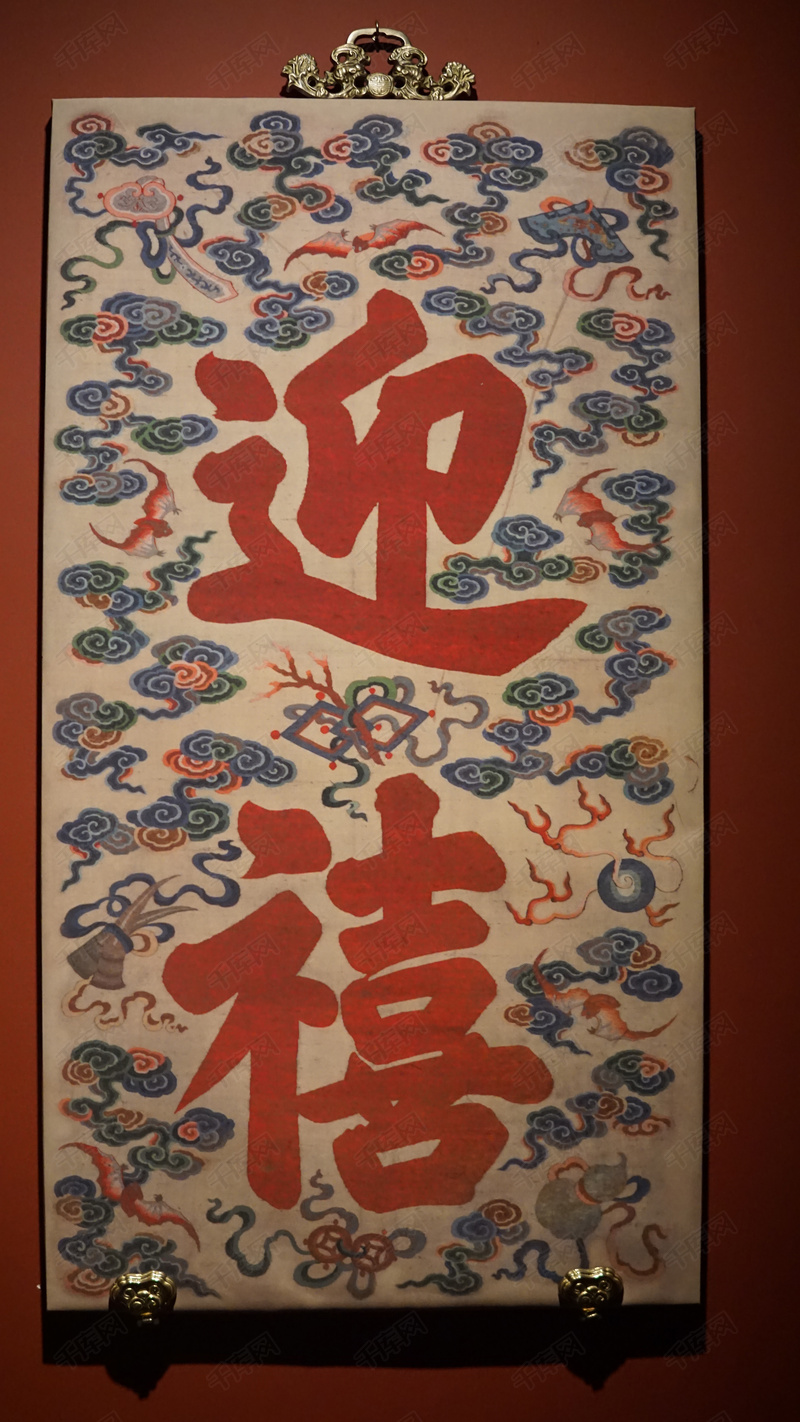 迎
禧
千库网